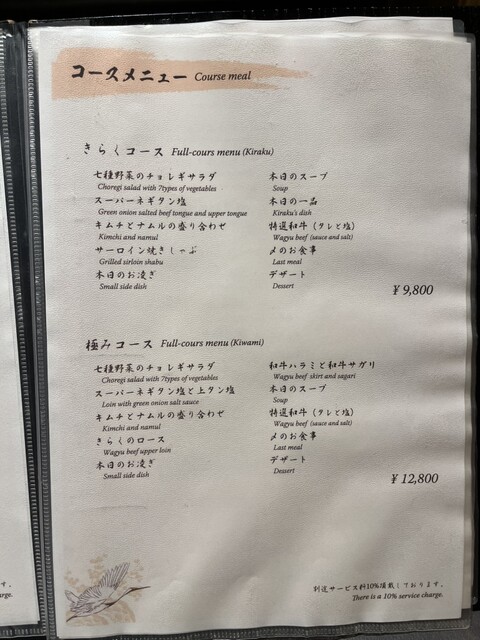 コースメニュー Course meal
きらくコース Full-cours menu (Kiraku)
七種野菜のチョレギサラダ
Choregi salad with 7types of vegetables
スーパーネギタン塩
Green onion salted beef tongue and upper tongue
キムチとナムルの盛り合わせ
Kimchi and namul
サーロイン焼きしゃぶ
Grilled sirloin shabu
本日のお凌ぎ
Small side dish
本日のスープ
Soup
本日の一品
Kiraku's dish
特選和牛（タレと塩）
Wagyu beef (sauce and salt)
〆のお食事
Last meal
デザート
Dessert
¥ 9,800
極みコース Full-cours menu (Kiwami)
七種野菜のチョレギサラダ
Choregi salad with 7types of vegetables
スーパーネギタン塩と上タン塩
Loin with green onion salt sauce
キムチとナムルの盛り合わせ
Kimchi and namul
きらくのロース
Wagyu beef upper loin
本日のお凌ぎ
Small side dish
和牛ハラミと和牛サガリ
Wagyu beef skirt and sagari
本日のスープ
Soup
特選和牛（タレと塩）
Wagyu beef (sauce and salt)
〆のお食事
Last meal
デザート
Dessert
¥ 12,800
別途サービス料10%頂戴しております。
There is a 10% service charge.
す。
arge.